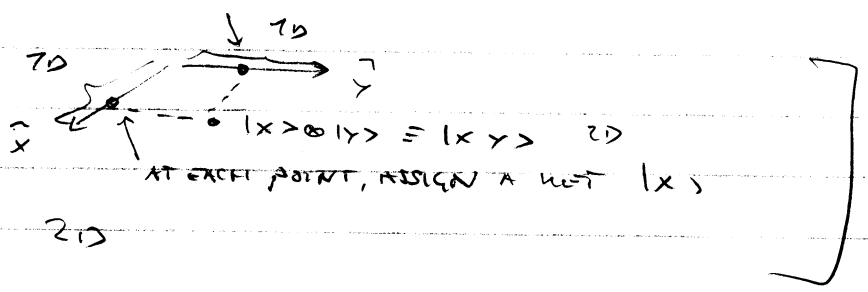 1D
1D
ŷ
x̂
|x>⊗|y> ≡ |x y> 2D
AT EACH POINT, ASSIGN A KET |x>
2D